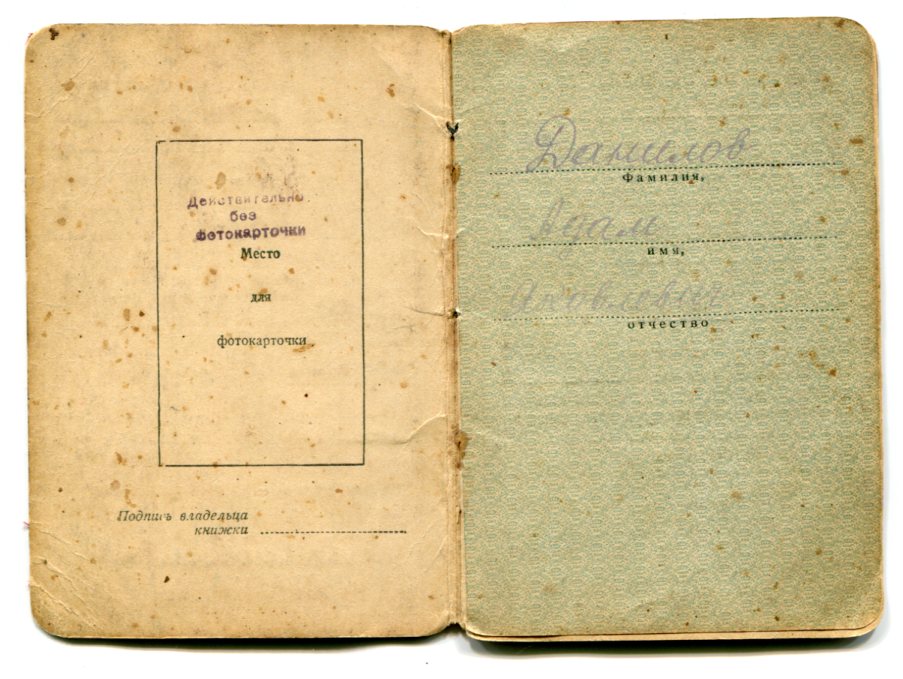 Действительно
без
фотокарточки
Место
для
фотокарточки
Подпись владельца
книжки
Данилов
Фамилия,
Адам
имя,
Яковлевич
отчество